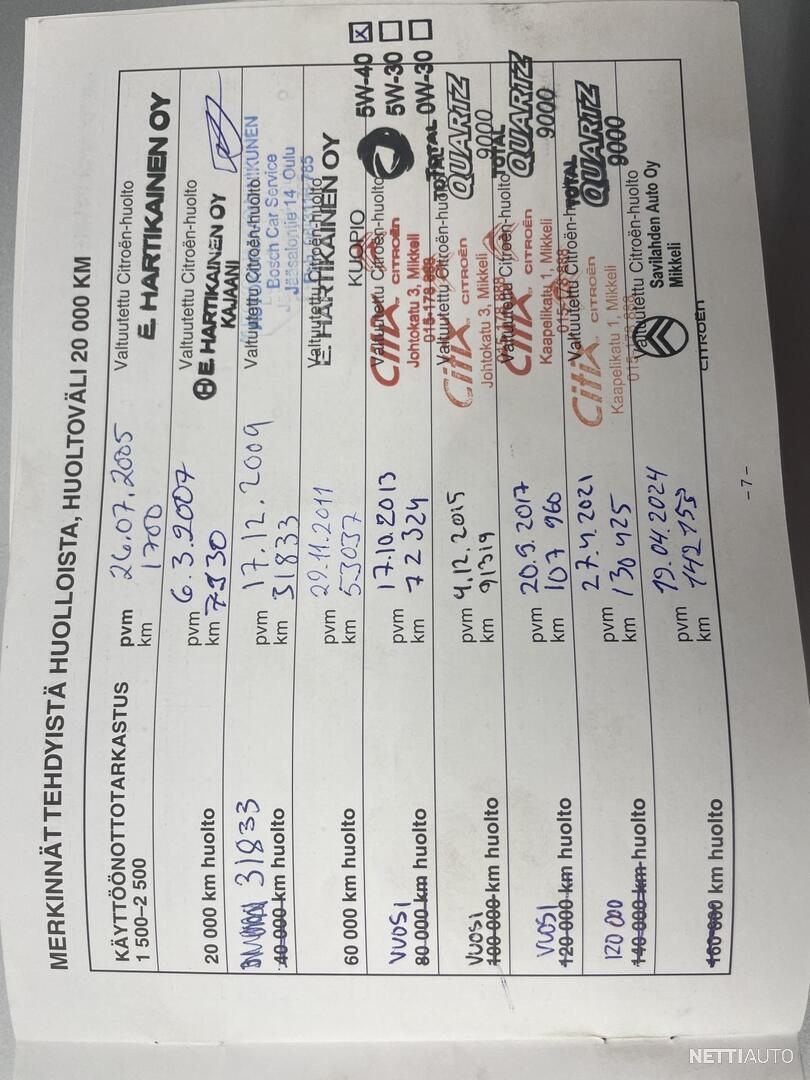 MERKINNÄT TEHDYISTÄ HUOLLOISTA, HUOLTOVÄLI 20 000 KM
KÄYTTÖÖNOTTOTARKASTUS
1 500–2 500
pvm 26.07.2005
km 1700
Valtuutettu Citroën-huolto
E. HARTIKAINEN OY
20 000 km huolto
pvm 6.3.2007
km 7930
Valtuutettu Citroën-huolto
E. HARTIKAINEN OY
KAJAANI
31833
40 000 km huolto
pvm 17.12.2009
km 31833
Valtuutettu Citroën-huolto
Bosch Car Service
Jääsalontie 14 Oulu
60 000 km huolto
pvm 29.11.2011
km 53037
Valtuutettu Citroën-huolto
E. HARTIKAINEN OY
KUOPIO
VUOSI
80 000 km huolto
pvm 17.10.2013
km 72 324
Valtuutettu Citroën-huolto
CitiX CITROËN
Johtokatu 3, Mikkeli
015-178 888
5W-40 X
5W-30
0W-30
TOTAL
QUARTZ
9000
VUOSI
100 000 km huolto
pvm 4.12.2015
km 91319
Valtuutettu Citroën-huolto
CitiX CITROËN
Johtokatu 3, Mikkeli
015-178 888
TOTAL
QUARTZ
9000
VUOSI
120 000 km huolto
pvm 20.9.2017
km 107 960
Valtuutettu Citroën-huolto
CitiX
Kaapelikatu 1, Mikkeli
015-178 888
TOTAL
QUARTZ
9000
120 000
140 000 km huolto
pvm 27.4.2021
km 130 425
Valtuutettu Citroën-huolto
CitiX CITROËN
Kaapelikatu 1, Mikkeli
015-178 888
160 000 km huolto
pvm 19.04.2024
km 142 153
Valtuutettu Citroën-huolto
Savilahden Auto Oy
Mikkeli
CITROËN
- 7 -
NETTIAUTO